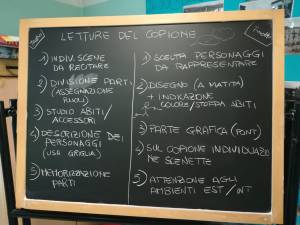 LETTURE DEL COPIONE
1) INDIV. SCENE
DA RECITARE
2) DIVISIONE PARTI
(ASSEGNAZIONE
RUOLI)
3) STUDIO ABITI/
ACCESSORI
4) DESCRIZIONE DEI
PERSONAGGI
(USA GRIGLIA)
5) MEMORIZZAZIONE
PARTI
1) SCELTA PERSONAGGI
DA RAPPRESENTARE
2) DISEGNO (A MATITA)
+ INDICAZIONE
COLORE/STOFFA ABITI
3) PARTE GRAFICA (FONT)
4) SUL COPIONE INDIVIDUAZIO
NE SCENETTE
5) ATTENZIONE AGLI
AMBIENTI EST/INT